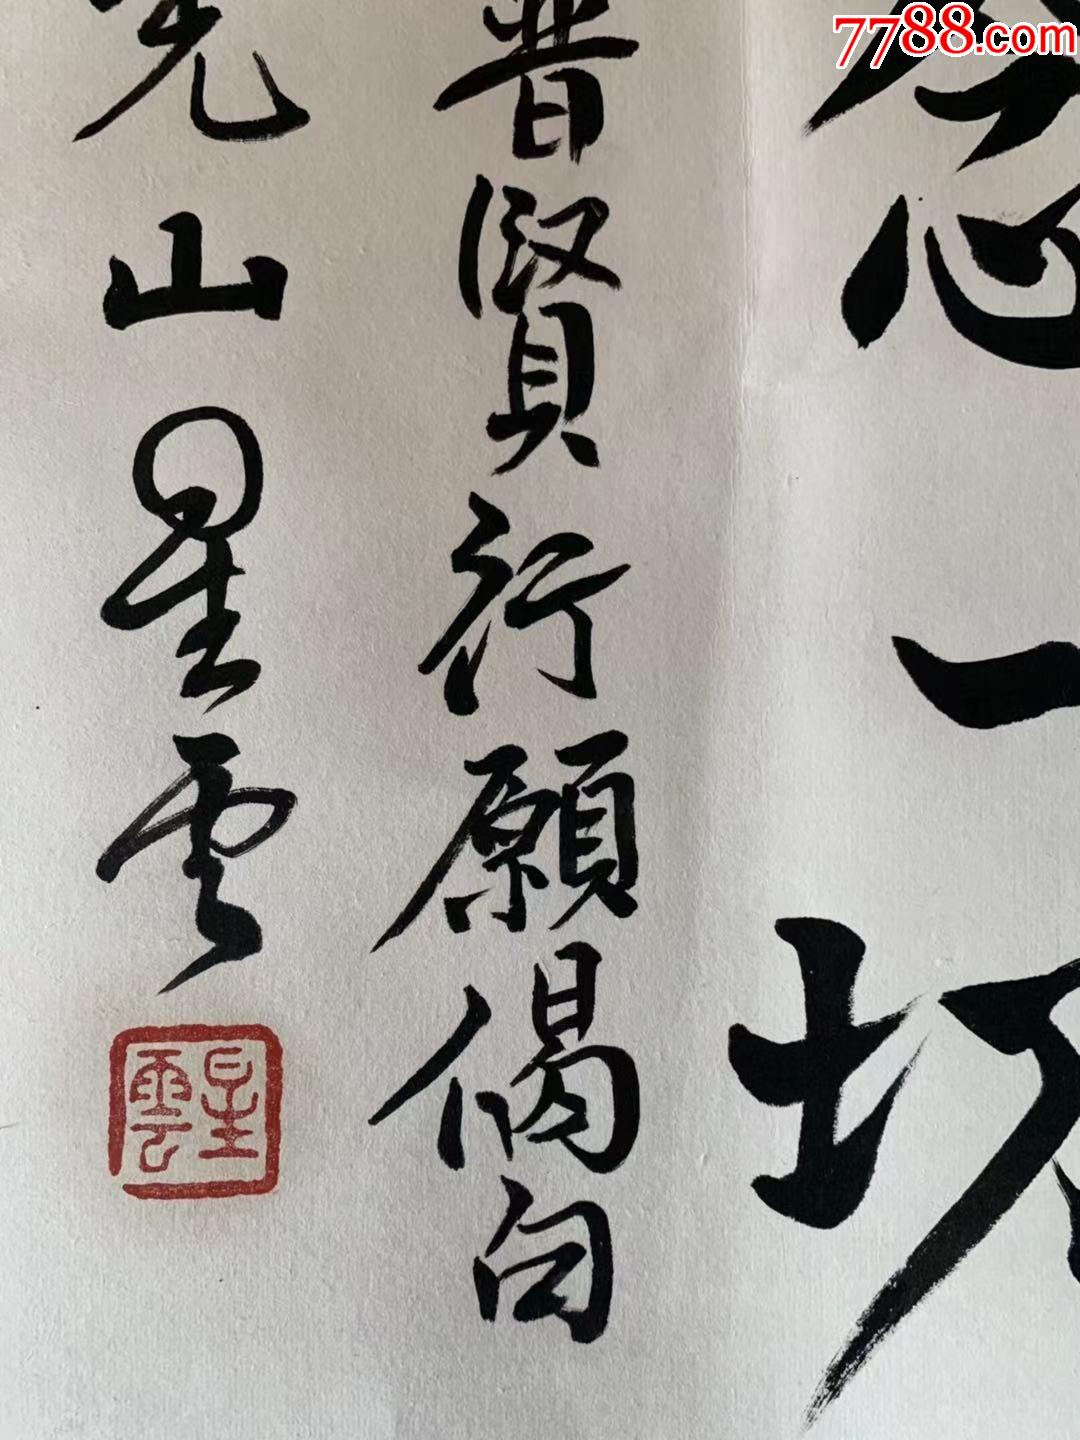 7788.com
念一切
普賢行願偈句
光山星雲
星雲